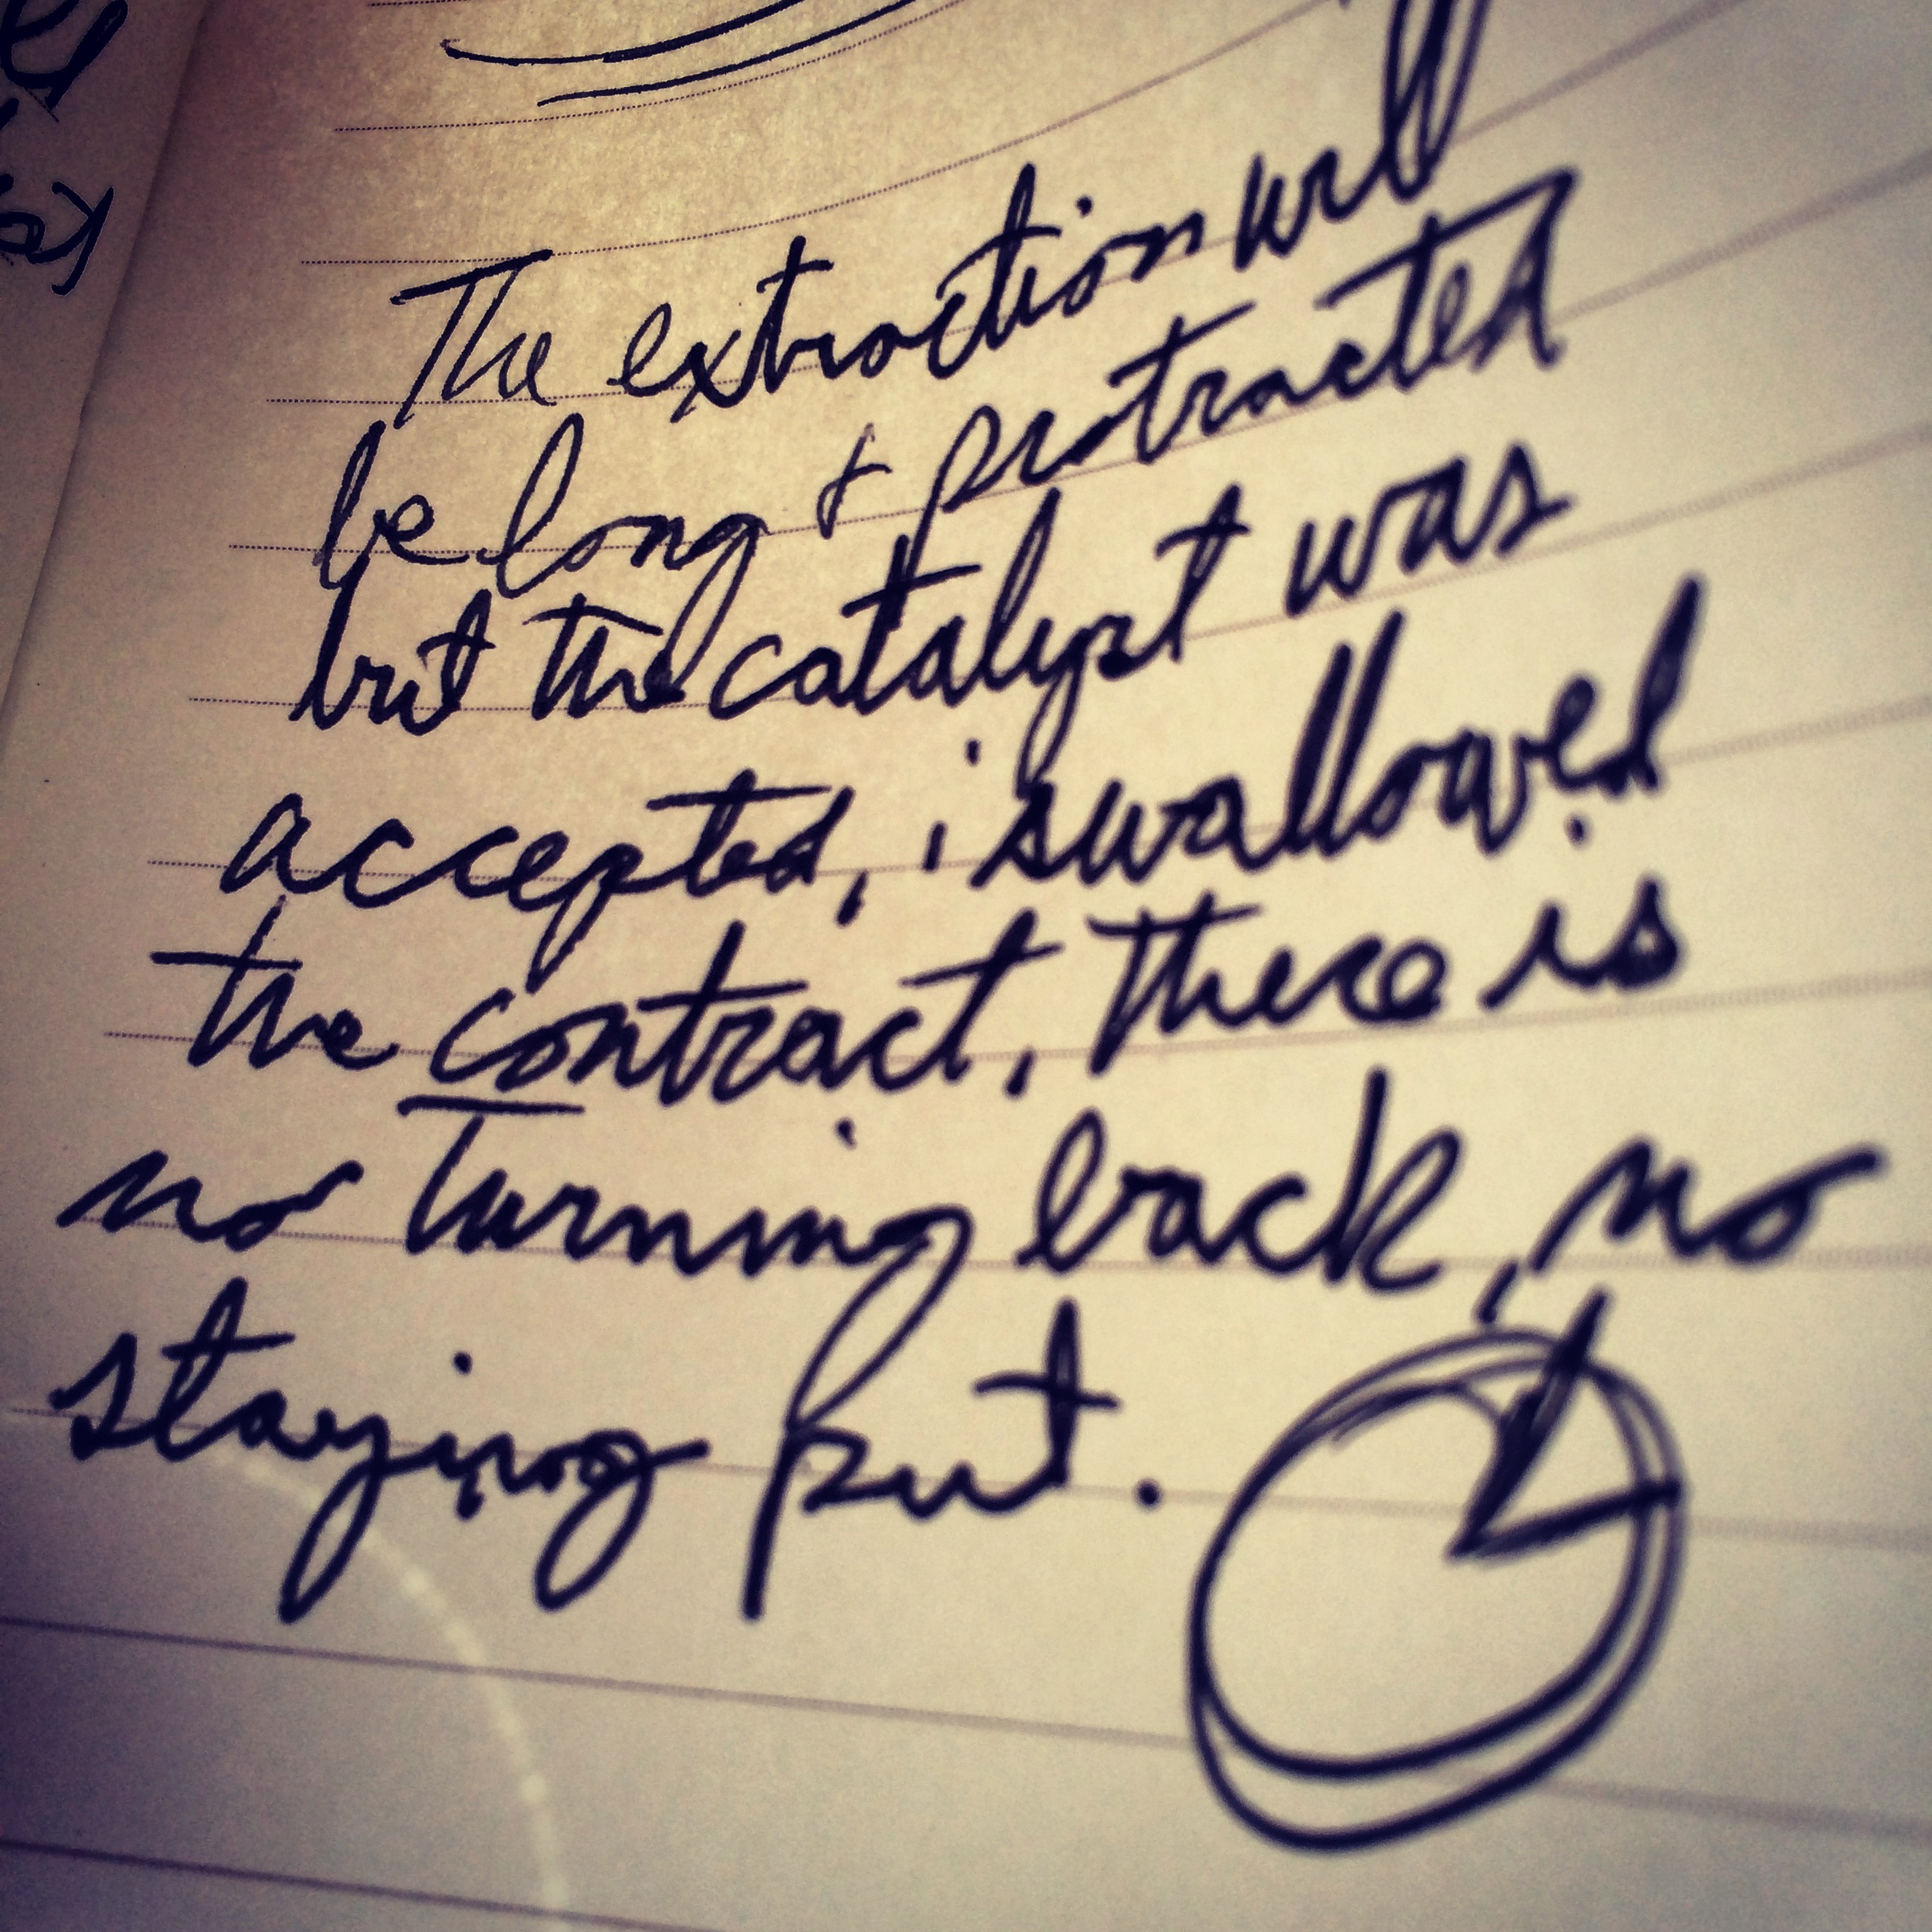 The extraction will
be long & protracted
but the catalyst was
accepted, i swallowed
the contract, there is
no Turning back, no
staying put.